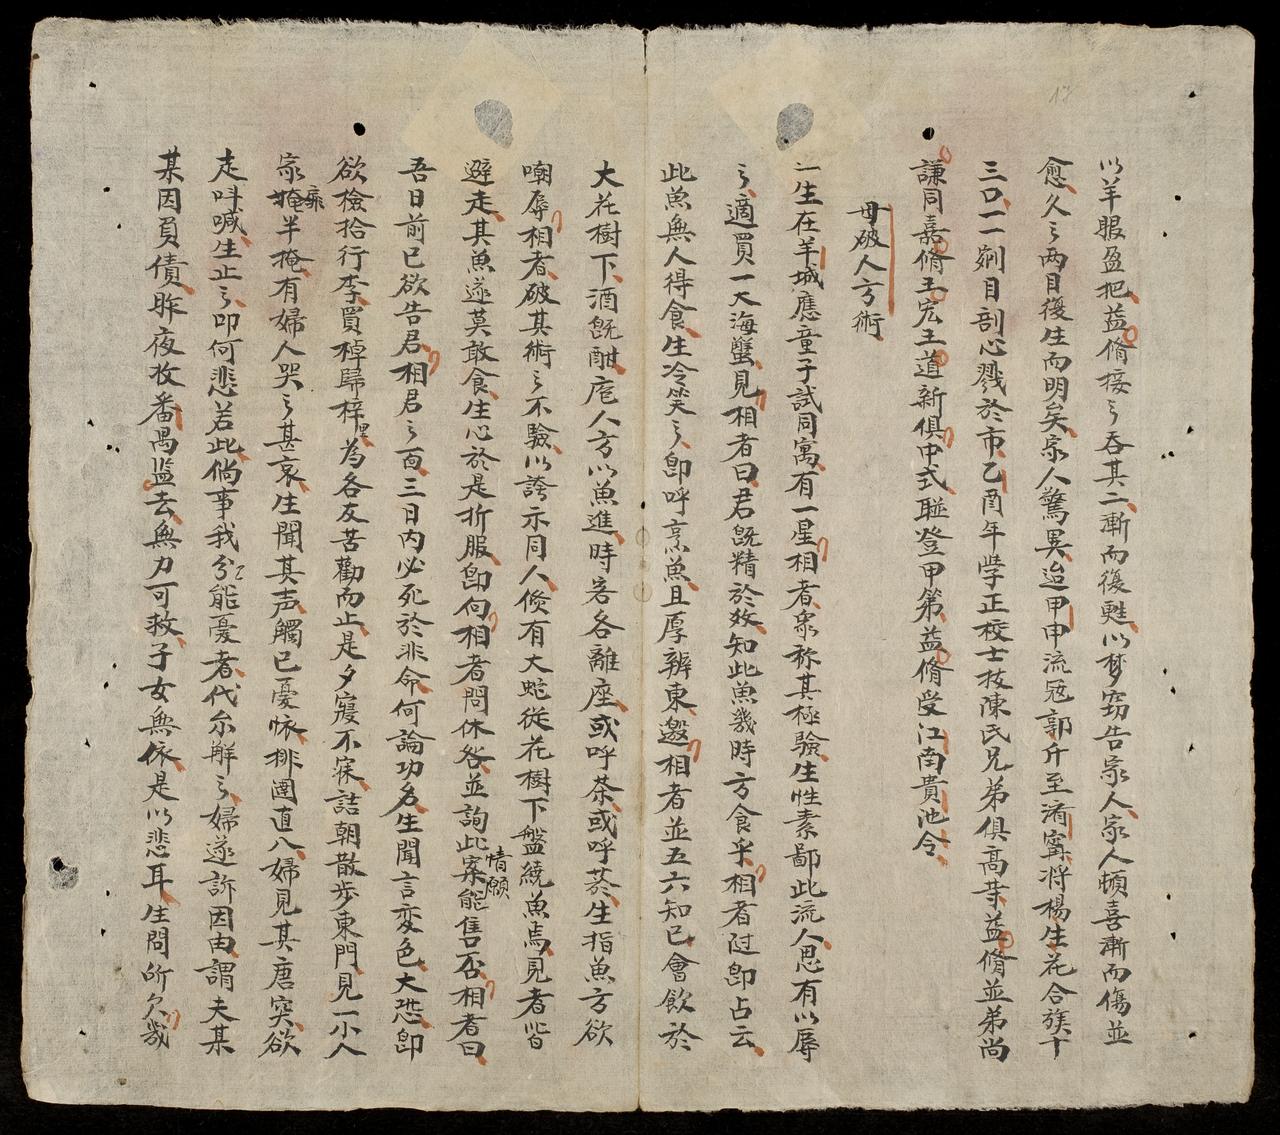 以羊眼盈把益脩接之吞其二漸而復甦以梦窃告家人家人頓喜漸而傷並
愈久之兩目復生而明矣家人驚異迨甲申流冠郭斤至淆寗将楊生花合族十
三口一一剜目剖心戮於市乙酉年學正校士拔陳氏兄弟俱高等益脩並弟尚
謙同嘉脩王宏王道新俱中式聯登甲第益脩受江南貴池令
毋破人方術
一生在羊城應童子試同寓有一星相者衆称其極驗生性素鄙此流人思有以辱
之適買一大海蟹見相者曰君既精於数知此魚幾時方食乎相者过即占云
此魚無人得食生冷笑之即呼烹魚且厚辦東邀相者並五六知已會飲於
大花樹下酒既酣庖人方以魚進時客各離座或呼茶或呼菸生指魚方欲
嘲辱相者破其術之不驗以誇示同人倐有大蛇從花樹下盤繞魚焉見者皆
避走其魚遂莫敢食生心於是折服即向相者問休咎並詢此案能售否相者曰
情願
吾日前已欲告君相君之面三日内必死於非命何論功名生聞言変色大恐即
欲檢拾行李買棹歸梓里為各友苦勸而止是夕寢不寐詰朝散步東門見一小人
家掩半掩有婦人哭之甚哀生聞其声觸已憂怺排闥直入婦見其唐突欲
走呌喊生止之叩何悲若此倘事我分能憂者代尔解之婦遂訴因由謂夫某
某因負債昨夜收番禺监去無力可救子女無依是以悲耳生問所欠幾